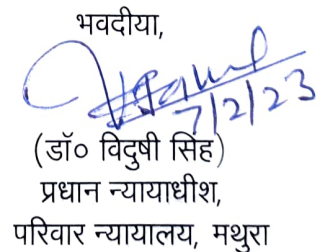 भवदीया,
7/2/23
(डॉ० विदुषी सिंह)
प्रधान न्यायाधीश,
परिवार न्यायालय, मथुरा